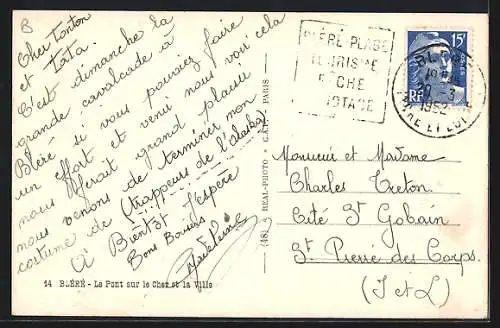 B
Cher Tonton
et Tata.
C'est dimanche la
grande cavalcade à
Bléré si vous pouviez faire
un effort et venir nous voir cela
nous ferait grand plaisir
nous venons de terminer mon
costume de (trappeurs de l'alaska)
À Bientôt j'espère
Bons Baisers
14 BLÉRÉ - Le Pont sur le Cher et la Ville
(48) REAL-PHOTO - C.A.P. - PARIS
BLÉRÉ-PLAGE
TOURISME
PÊCHE
CANOTAGE
15F
RF
1952
INDRE ET LOIRE
Monsieur et Madame
Charles Creton.
Cité St Gobain
St Pierre des Corps.
(I et L)